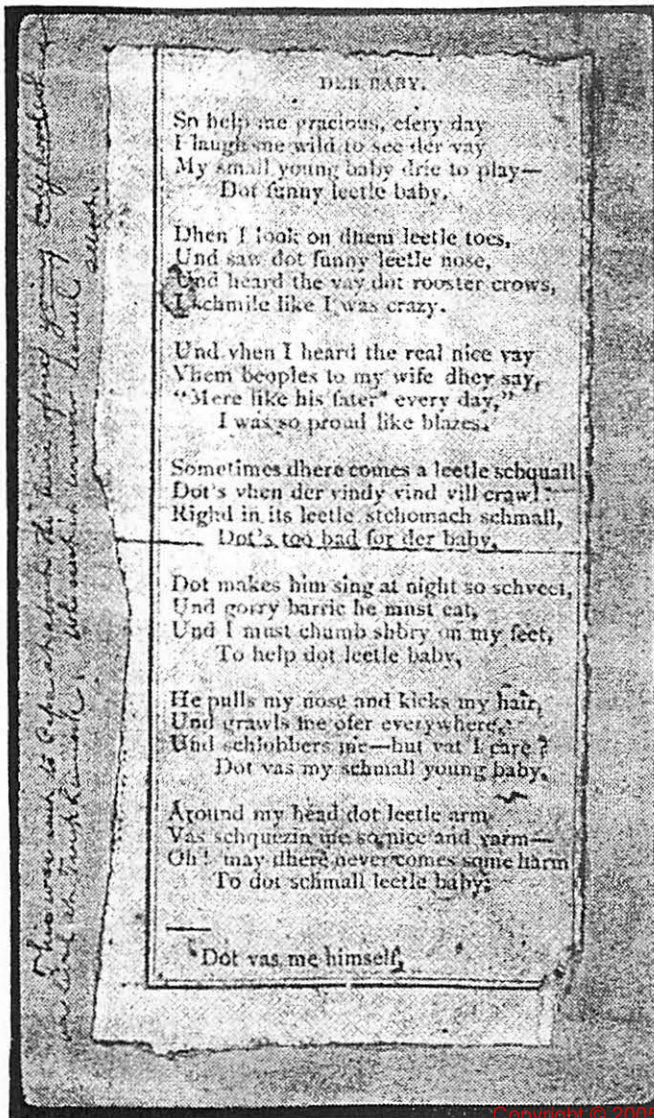 DER BABY.
So help me gracious, efery day
I laugh me wild to see der vay
My small young baby drie to play—
Dot funny leetle baby.
Dhen I look on dhem leetle toes,
Und saw dot funny leetle nose,
Und heard the vay dot rooster crows,
I schmile like I was crazy.
Und vhen I heard the real nice vay
Vhem beoples to my wife dhey say,
"More like his fater* every day,"
I was so proud like blazes.
Sometimes dhere comes a leetle schquall
Dot's vhen der vindy vind vill crawl
Righd in its leetle stchomach schmall,
Dot's too bad for der baby.
Dot makes him sing at night so schveet,
Und gorry barric he must eat,
Und I must chumb shbry on my feet,
To help dot leetle baby,
He pulls my nose and kicks my hair,
Und grawls me ofer everywhere,
Und schlobbers me—but vat I care?
Dot vas my schmall young baby.
Around my head dot leetle arm
Vas schquezin me so nice and varm—
Oh! may dhere never comes some harm
To dot schmall leetle baby.
*Dot vas me himself.
This was sent to Papa about the time of my young
Copyright © 2005